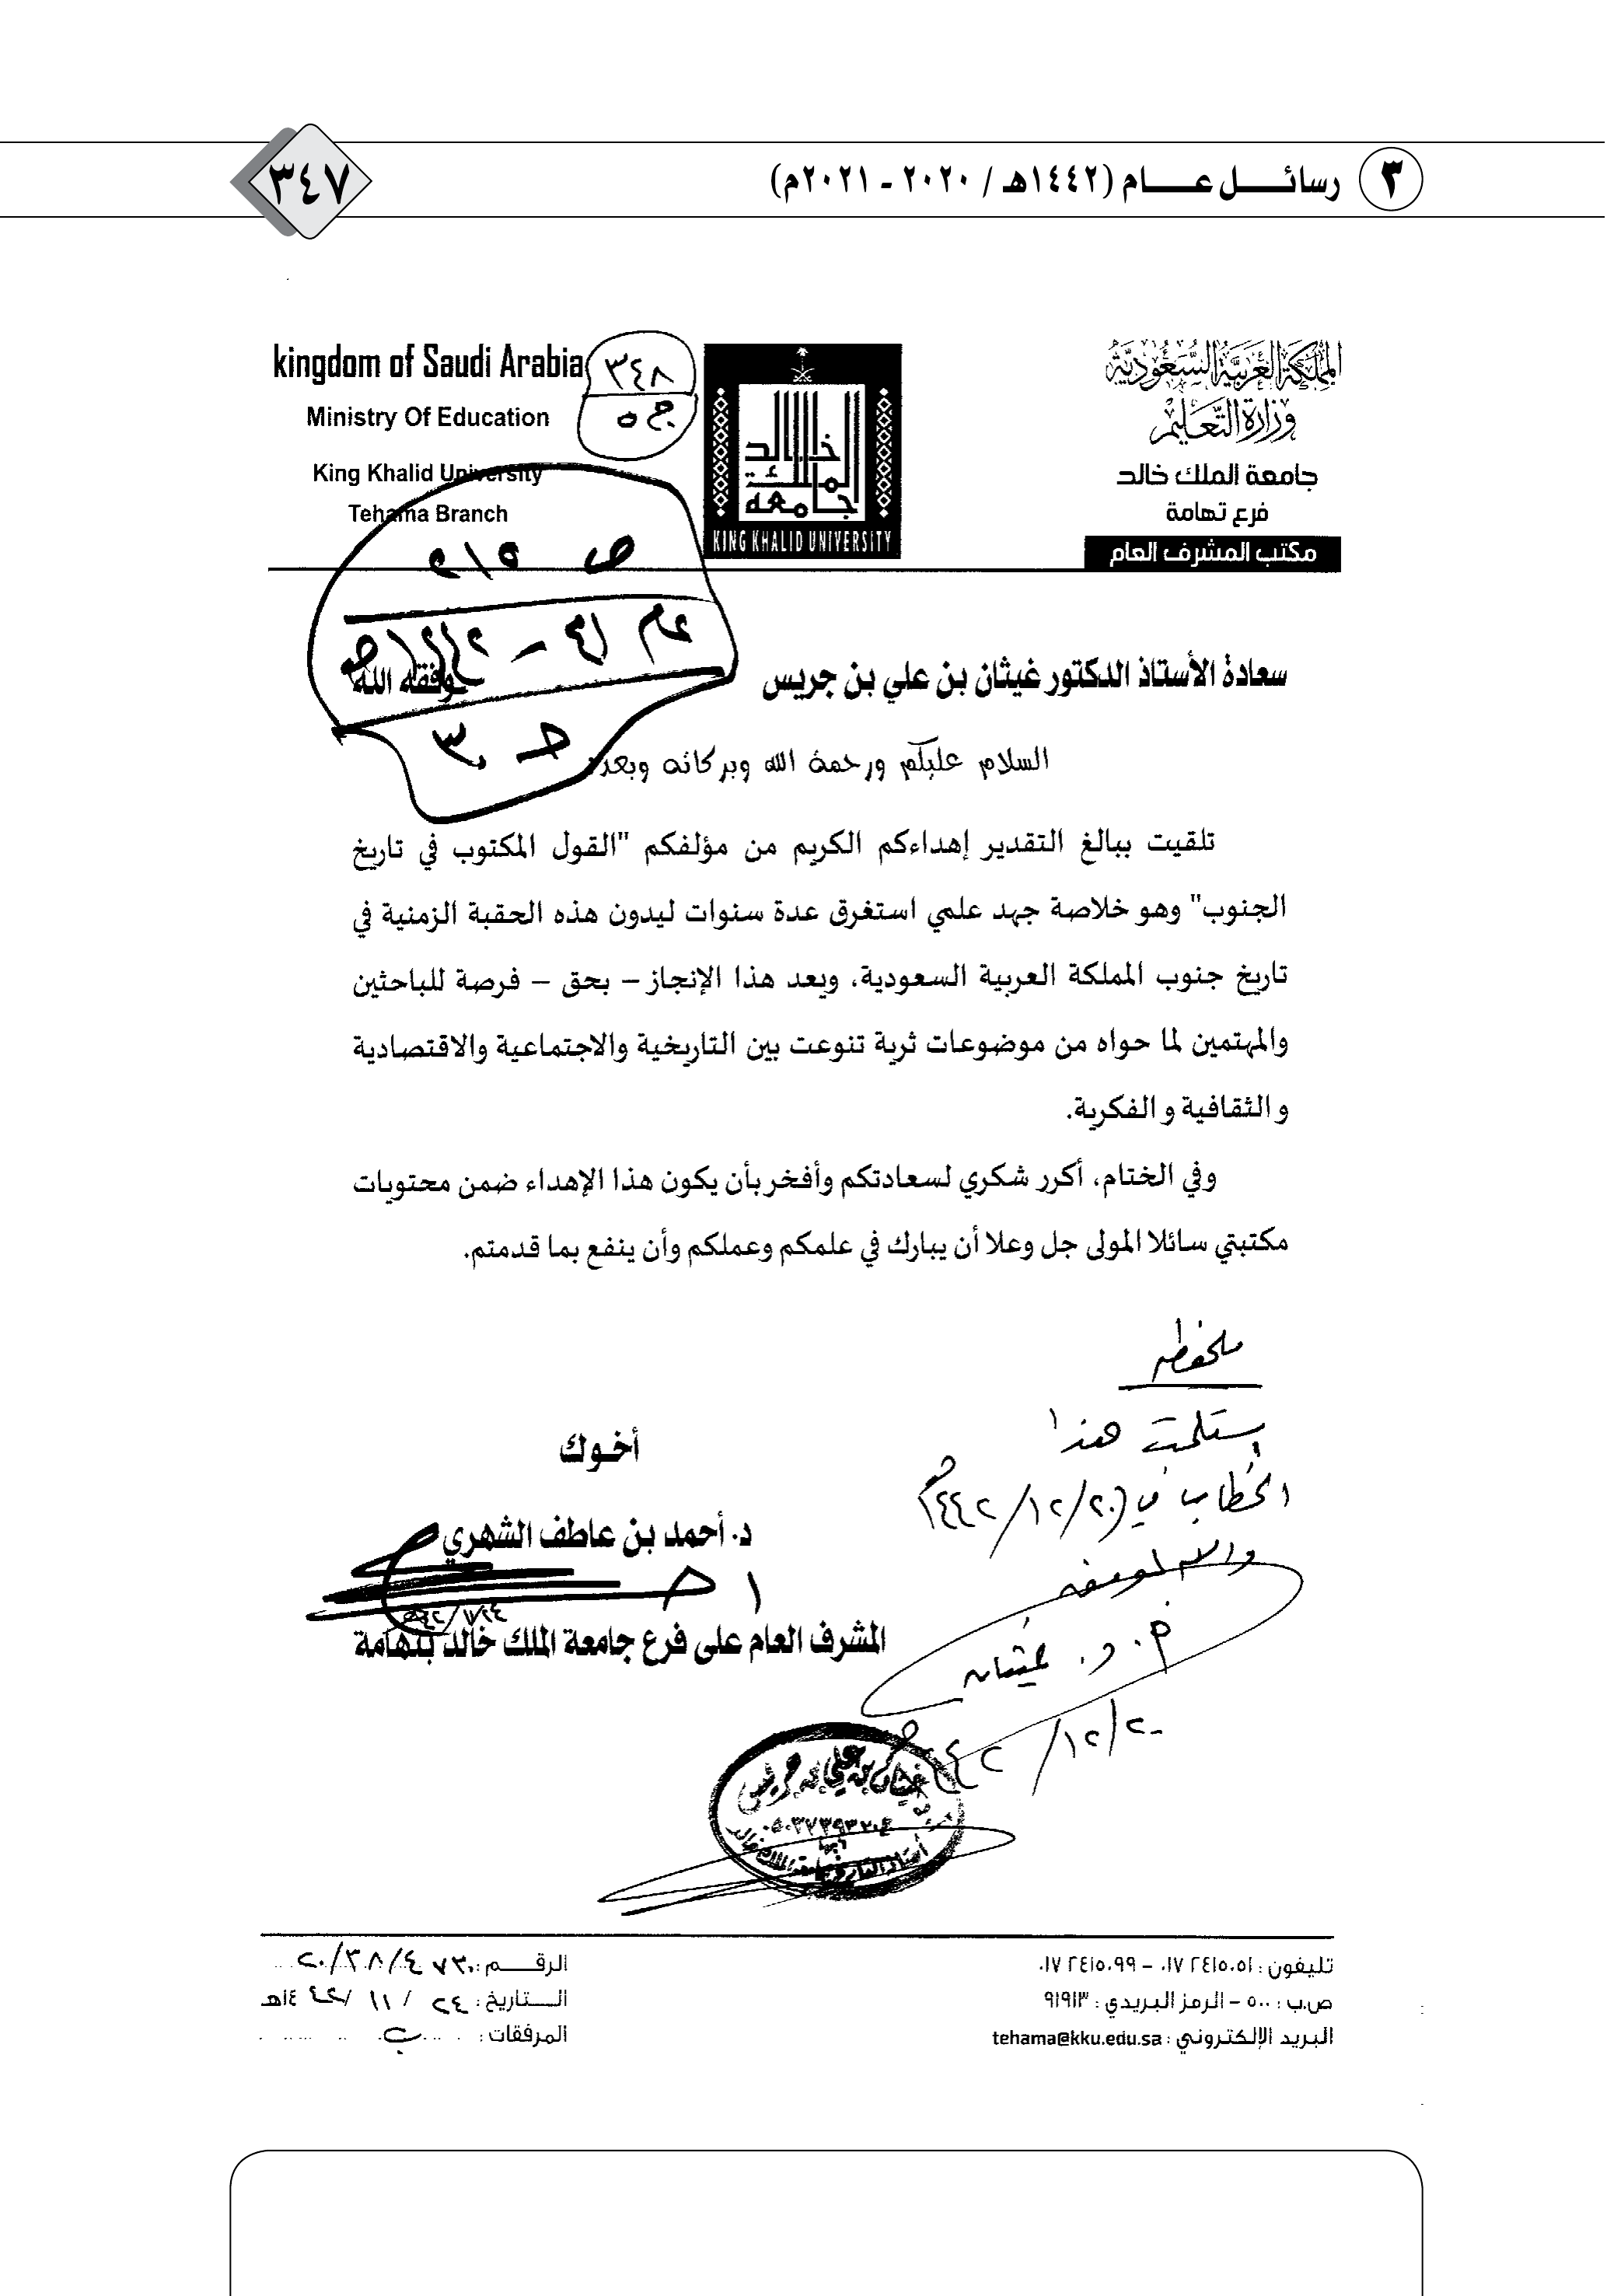 ٣ رسائل عام (١٤٤٢هـ / ٢٠٢٠ - ٢٠٢١م)
٣٤٧
المملكة العربية السعودية
وزارة التعليم
جامعة الملك خالد
فرع تهامة
مكتب المشرف العام
جامعة الملك خالد
KING KHALID UNIVERSITY
kingdom of Saudi Arabia
Ministry Of Education
King Khalid University
Tehama Branch
٣٤٨
ج ٥
سعادة الأستاذ الدكتور غيثان بن علي بن جريس وفقه الله
السلام عليكم ورحمة الله وبركاته وبعد:
تلقيت ببالغ التقدير إهداءكم الكريم من مؤلفكم "القول المكتوب في تاريخ
الجنوب" وهو خلاصة جهد علمي استغرق عدة سنوات ليدون هذه الحقبة الزمنية في
تاريخ جنوب المملكة العربية السعودية، ويعد هذا الإنجاز – بحق – فرصة للباحثين
والمهتمين لما حواه من موضوعات ثرية تنوعت بين التاريخية والاجتماعية والاقتصادية
والثقافية والفكرية.
وفي الختام، أكرر شكري لسعادتكم وأفخر بأن يكون هذا الإهداء ضمن محتويات
مكتبتي سائلا المولى جل وعلا أن يبارك في علمكم وعملكم وأن ينفع بما قدمتم.
أخوك
د. أحمد بن عاطف الشهري
المشرف العام على فرع جامعة الملك خالد بتهامة
ملحوظة
إستلمت هذا
الخطاب في (٢٠/١٢/١٤٤٢هـ)
والله الموفق
أ. د. غيثان
٢٠/١٢/١٤٤٢هـ
غيثان بن علي بن جريس
تليفون : ٠١٧ ٢٤١٥٠٥١ – ٠١٧ ٢٤١٥٠٩٩
ص.ب : ٥٠٠ – الرمز البريدي : ٩١٩١٣
البريد الإلكتروني : tehama@kku.edu.sa
الرقم :
التاريخ :
المرفقات :